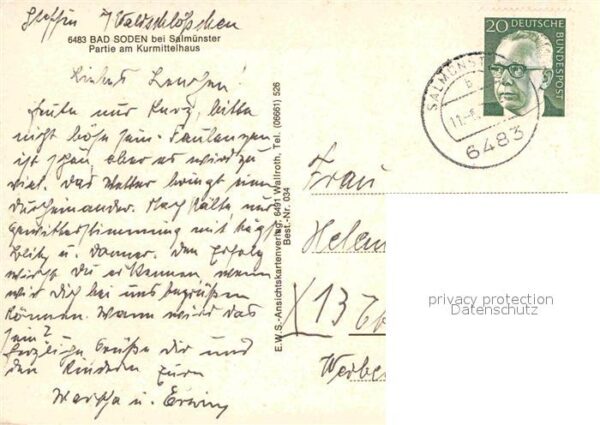 Waldschlößchen
6483 BAD SODEN bei Salmünster
Partie am Kurmittelhaus
Liebes Lenchen!
Heute nur kurz, bitte
nicht böse sein. Faulenzen
ist schön, aber es wird zu
viel. Das Wetter bringt
durcheinander. Kälte
Gewitterstimmung mit
Blitz u. Donner. Den Erfolg
wirst Du erkennen wenn
wir Dich bei uns begrüßen
können. Wann wird das
sein?
herzliche Grüße Dir und
den Kindern
u. Erwin
E.W.S.-Ansichtskartenverlag, 6491 Wallroth, Tel. (06661) 526
Best.-Nr. 034
20 DEUTSCHE
BUNDESPOST
SALMÜNST
b
6483
Frau
Helen
X 13
privacy protection
Datenschutz